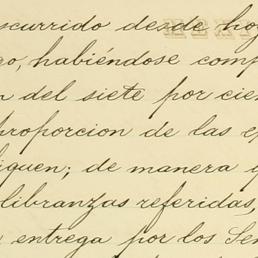 scurrido desde hoy
go, habiéndose comp
n del siete por cien
proporcion de las e
liguen; de manera q
libranzas referidas,
entrega por los Señ